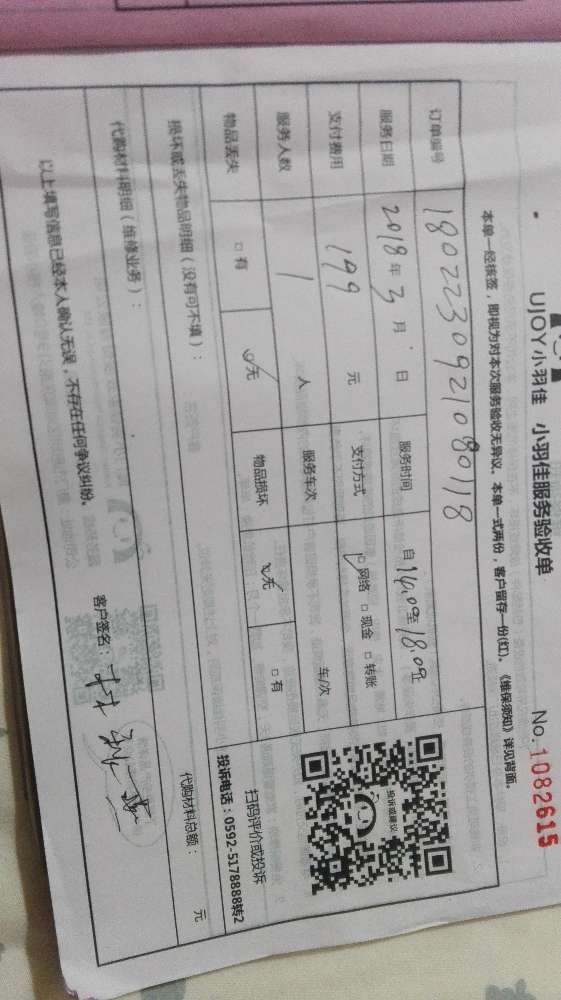 UJOY小羽佳 小羽佳服务验收单
No.1082615
本单一经核签，即视为对本次服务验收无异议。本单一式两份，客户留存一份(红)。《维保须知》详见背面。
订单编号 1802230921080118
服务日期 2018年3月 日 服务时间 自14:09至18:09止
支付费用 199 元 支付方式 □网络 □现金 □转账
服务人数 1 人 服务车次 车/次
物品丢失 □有 □无 物品损坏 □无 □有
投诉或建议
扫码评价或投诉
投诉电话：0592-5178888转2
损坏或丢失物品明细（没有可不填）：
代购材料明细（维修业务）： 代购材料总额： 元
以上填写信息已经本人确认无误，不存在任何争议纠纷。
客户签名：